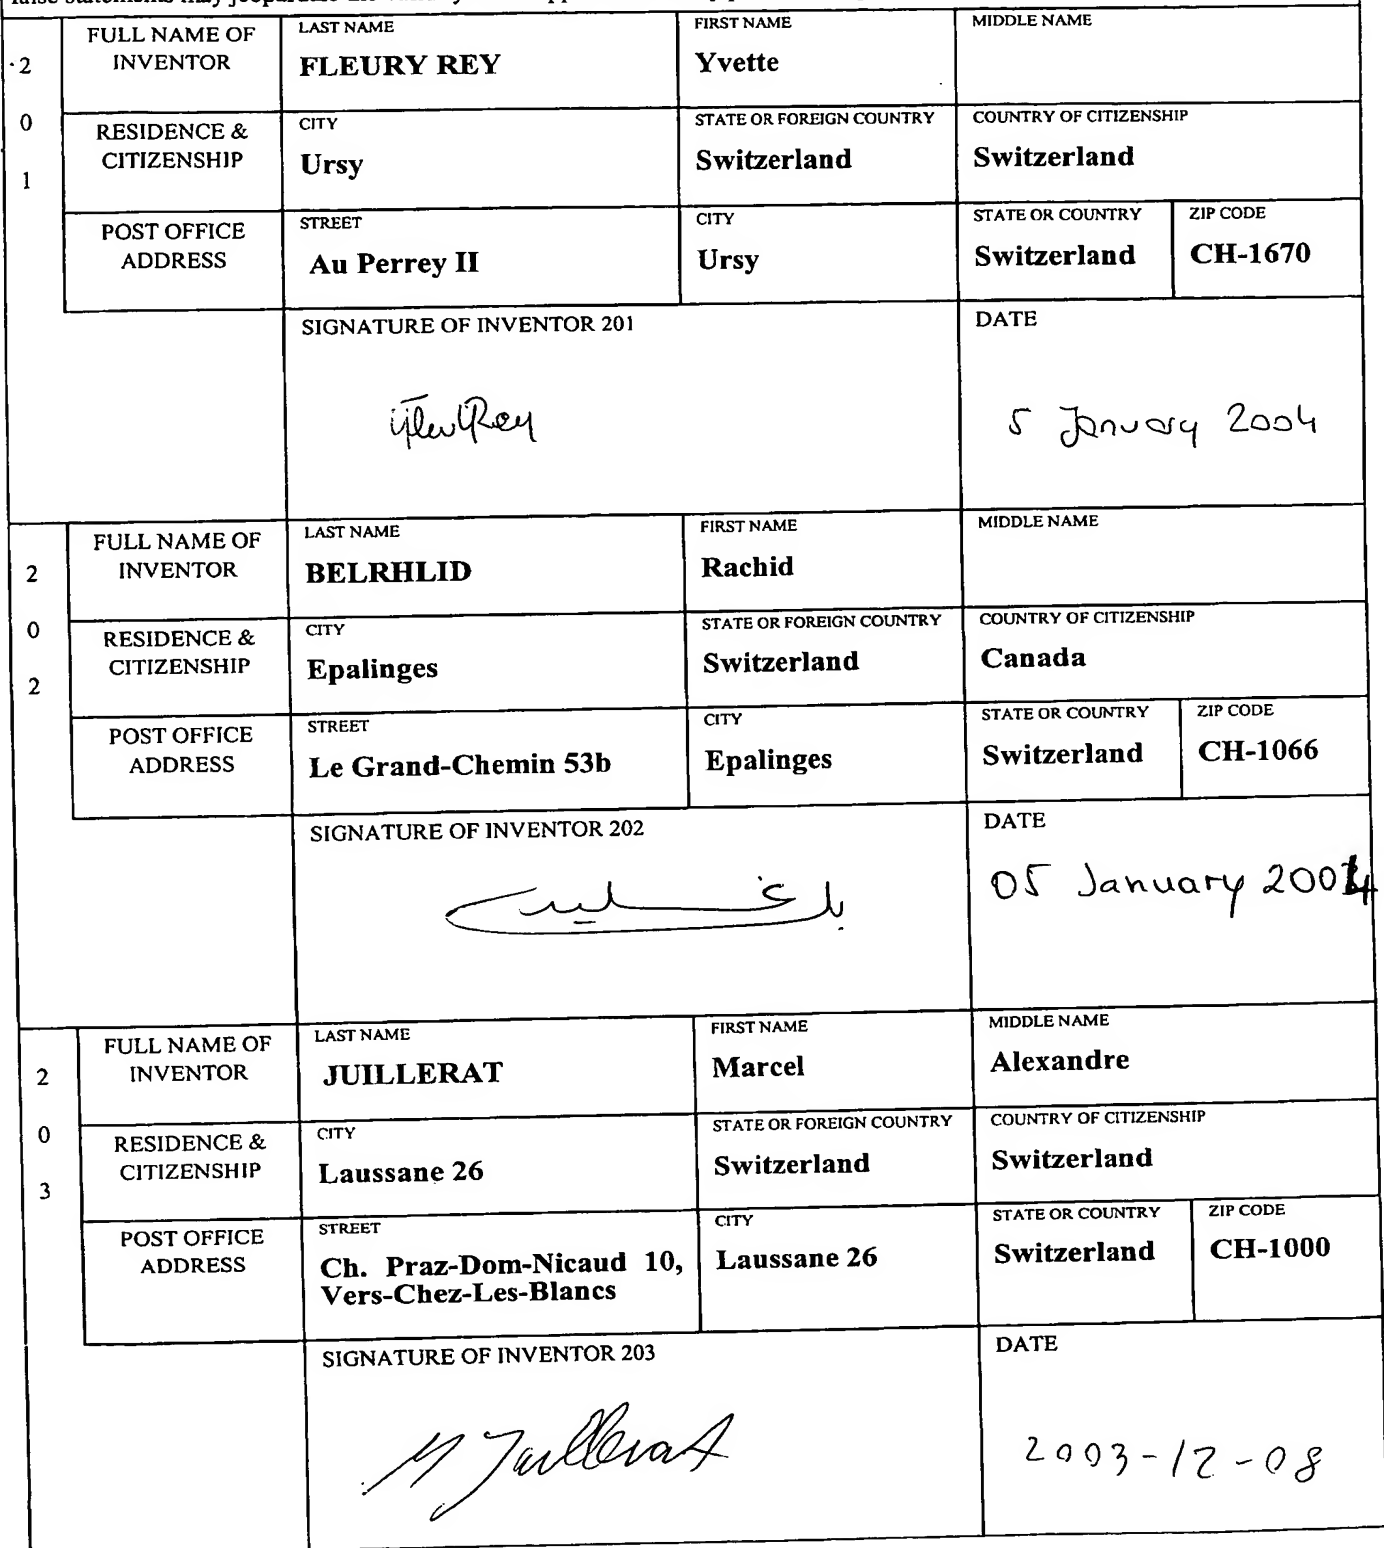 FULL NAME OF INVENTOR
LAST NAME
FLEURY REY
FIRST NAME
Yvette
MIDDLE NAME
2
0
1
RESIDENCE & CITIZENSHIP
CITY
Ursy
STATE OR FOREIGN COUNTRY
Switzerland
COUNTRY OF CITIZENSHIP
Switzerland
POST OFFICE ADDRESS
STREET
Au Perrey II
CITY
Ursy
STATE OR COUNTRY
Switzerland
ZIP CODE
CH-1670
SIGNATURE OF INVENTOR 201
DATE
5 January 2004
2
0
2
FULL NAME OF INVENTOR
LAST NAME
BELRHLID
FIRST NAME
Rachid
MIDDLE NAME
RESIDENCE & CITIZENSHIP
CITY
Epalinges
STATE OR FOREIGN COUNTRY
Switzerland
COUNTRY OF CITIZENSHIP
Canada
POST OFFICE ADDRESS
STREET
Le Grand-Chemin 53b
CITY
Epalinges
STATE OR COUNTRY
Switzerland
ZIP CODE
CH-1066
SIGNATURE OF INVENTOR 202
DATE
05 January 2004
2
0
3
FULL NAME OF INVENTOR
LAST NAME
JUILLERAT
FIRST NAME
Marcel
MIDDLE NAME
Alexandre
RESIDENCE & CITIZENSHIP
CITY
Laussane 26
STATE OR FOREIGN COUNTRY
Switzerland
COUNTRY OF CITIZENSHIP
Switzerland
POST OFFICE ADDRESS
STREET
Ch. Praz-Dom-Nicaud 10,
Vers-Chez-Les-Blancs
CITY
Laussane 26
STATE OR COUNTRY
Switzerland
ZIP CODE
CH-1000
SIGNATURE OF INVENTOR 203
M Juillerat
DATE
2003-12-08